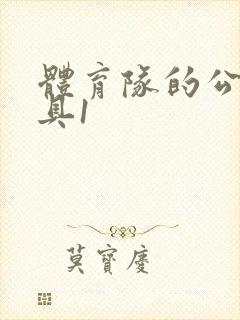 體育隊的公
具1
莫寶慶